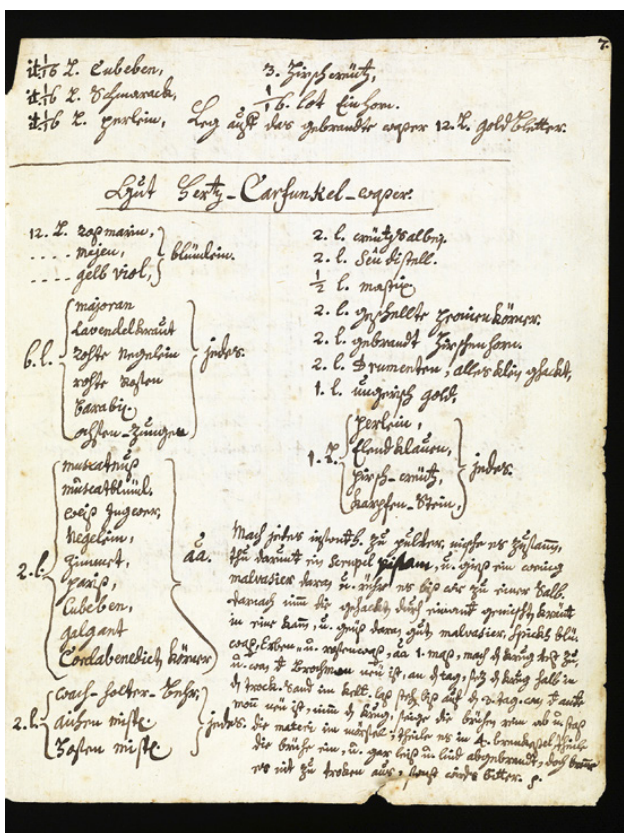 7.
it. 1/16 L. Cubeben,
it. 1/16 L. Schmarack,
it. 1/16 L. perlein,
3. Hirschcreütz,
1/16. lot Einhorn.
Leg auff das gebrandte waßer 12. L. goldbletter.
Gut Hertz-Carfunkel-waßer.
12. L. roßmarin,
.... meÿen,
.... gelb viol,
blümlein.
6. l.
majoran
Lavendelkraut
rohte Negelein
rohte Rosen
ochsen-Zungen
jedes.
2. l.
muscatnuß
muscatblüml.
weiß Ingwer,
Negelein,
Zimmet,
pariß,
Cubeben,
galgant
Cordabenedict körner
aa.
2. l.
wach-holter-behr,
aichen mistl.
Haslen mistl.
jedes.
2. l. creützsalbey.
2. l. Seüdistell.
1/2 l. mastix.
2. l. geschellte peonienkörner.
2. l. gebrandt Hirschenhorn.
2. l. Drumenten, alles klein ghackt,
1. l. ungerisch gold,
1. L.
perlein,
Elendklauen,
Hirsch-creütz,
Karpfen-Stein,
jedes.
Mach jedes zu pulver, mische es zusamm,
thu darunter ein Scrupel bisam, u. gieß ein wenig
malvasier daran u. rühr es biß wie zu einer Salb.
darnach nimm die gehackte durch einand gemischt kräut
in eine kann, u. gieß daran gut malvasier,
u. rosenwaß, aa 1. maß, mach d krug vest zu,
neü ist, an d tag, setz d krug halb in
d trock. Sand im kell. laß stehn biß auf d tag,
neü ist, nimm d krug, seige die brühen rein ab u. stoß
die materi im mörsel, theile es in 4. theile
die brühe ein, u. gar leiß u. lind abgebrandt, doch brenn
es nit zu troken aus, sonst wirds bitter.